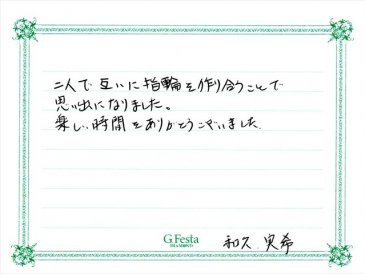 二人で互いに指輪を作り合うことで
思い出になりました。
楽しい時間をありがとうございました.
G.Festa
DIAMOND
和久 実希